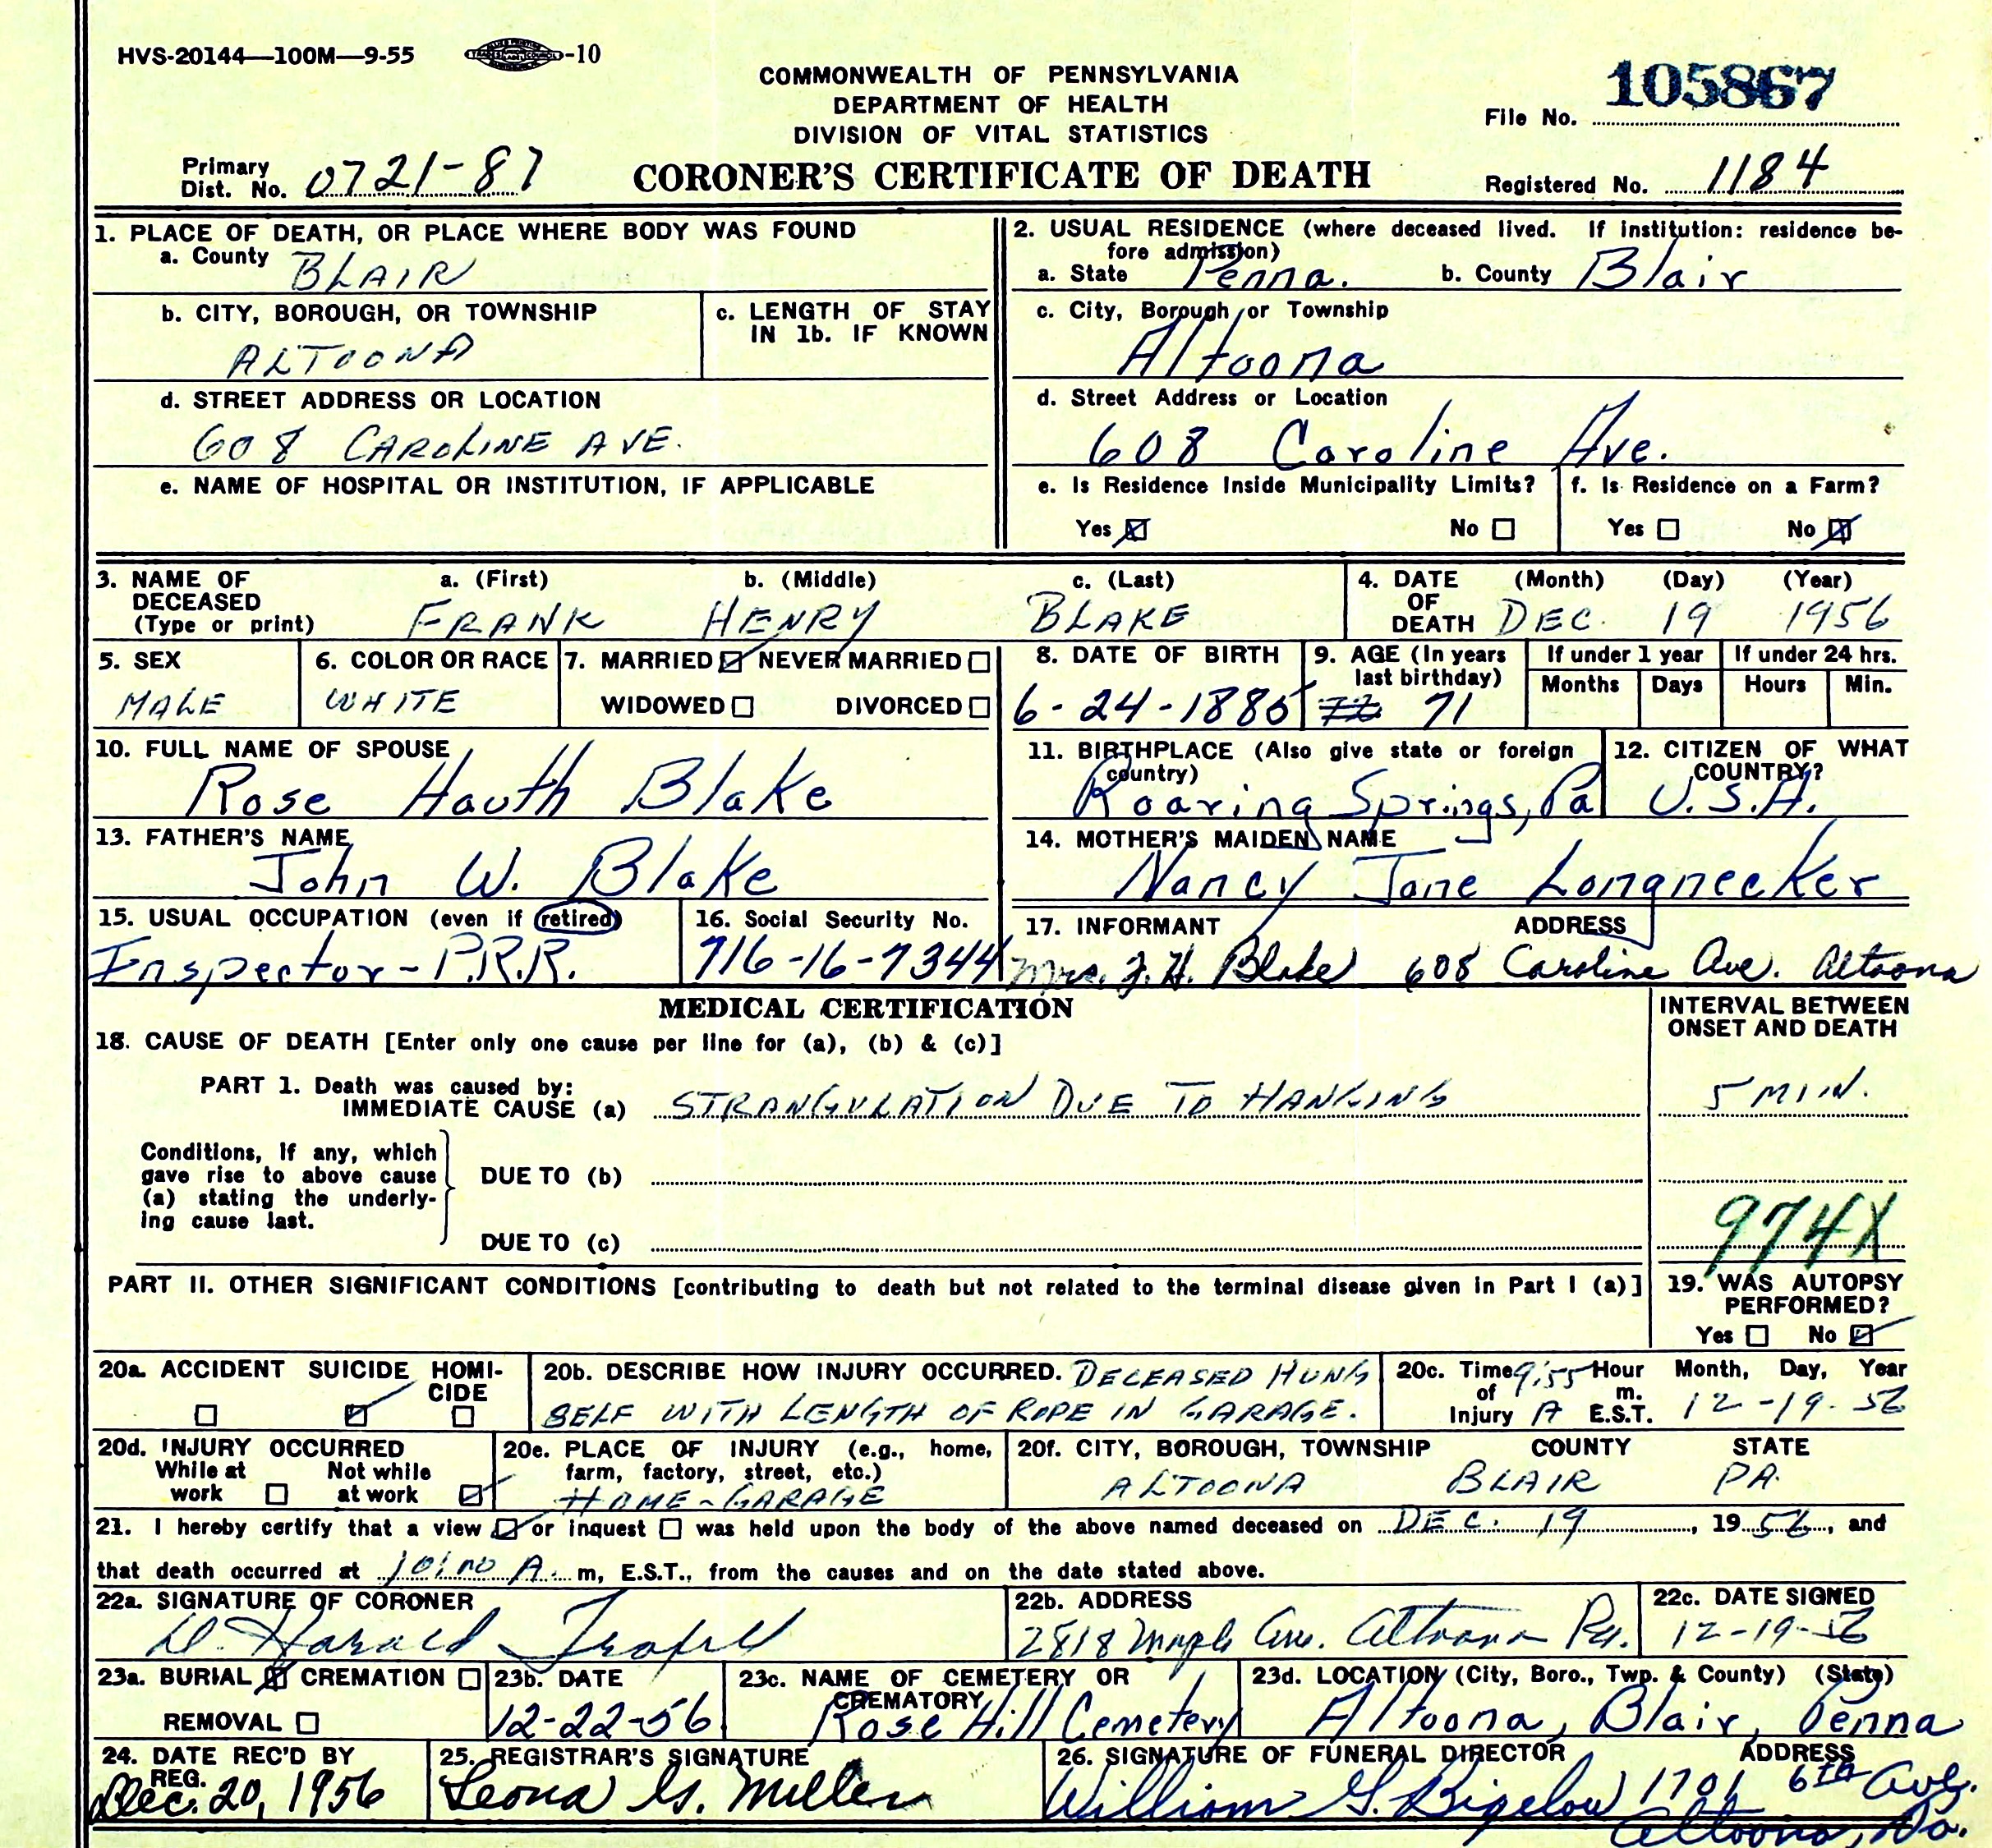 HVS-20144—100M—9-55 -10
COMMONWEALTH OF PENNSYLVANIA
DEPARTMENT OF HEALTH
DIVISION OF VITAL STATISTICS
CORONER'S CERTIFICATE OF DEATH
File No. 105867
Primary Dist. No. 0721-87
Registered No. 1184
1. PLACE OF DEATH, OR PLACE WHERE BODY WAS FOUND
a. County BLAIR
b. CITY, BOROUGH, OR TOWNSHIP
ALTOONA
c. LENGTH OF STAY
IN 1b. IF KNOWN
d. STREET ADDRESS OR LOCATION
608 CAROLINE AVE.
e. NAME OF HOSPITAL OR INSTITUTION, IF APPLICABLE
2. USUAL RESIDENCE (where deceased lived. If institution: residence be-
fore admission)
a. State Penna. b. County Blair
c. City, Borough, or Township
Altoona
d. Street Address or Location
608 Caroline Ave.
e. Is Residence Inside Municipality Limits?
Yes No
f. Is Residence on a Farm?
Yes No
3. NAME OF DECEASED (Type or print)
a. (First) b. (Middle) c. (Last)
FRANK HENRY BLAKE
4. DATE OF DEATH (Month) (Day) (Year)
DEC. 19 1956
5. SEX
MALE
6. COLOR OR RACE
WHITE
7. MARRIED NEVER MARRIED
WIDOWED DIVORCED
8. DATE OF BIRTH
6-24-1885
9. AGE (In years
last birthday)
71
If under 1 year If under 24 hrs.
Months Days Hours Min.
10. FULL NAME OF SPOUSE
Rose Hauth Blake
11. BIRTHPLACE (Also give state or foreign
country)
Roaring Springs, Pa
12. CITIZEN OF WHAT
COUNTRY?
U.S.A.
13. FATHER'S NAME
John W. Blake
14. MOTHER'S MAIDEN NAME
Nancy Jane Longnecker
15. USUAL OCCUPATION (even if retired)
Inspector - P.R.R.
16. Social Security No.
716-16-7344
17. INFORMANT ADDRESS
Mrs. F. H. Blake 608 Caroline Ave. Altoona
MEDICAL CERTIFICATION
INTERVAL BETWEEN
ONSET AND DEATH
18. CAUSE OF DEATH [Enter only one cause per line for (a), (b) & (c)]
PART 1. Death was caused by:
IMMEDIATE CAUSE (a) STRANGULATION DUE TO HANGING 5 MIN.
Conditions, if any, which
gave rise to above cause
(a) stating the underly-
ing cause last.
DUE TO (b)
DUE TO (c)
974X
PART II. OTHER SIGNIFICANT CONDITIONS [contributing to death but not related to the terminal disease given in Part I (a)]
19. WAS AUTOPSY
PERFORMED?
Yes No
20a. ACCIDENT SUICIDE HOMI-
CIDE
20b. DESCRIBE HOW INJURY OCCURRED. DECEASED HUNG
SELF WITH LENGTH OF ROPE IN GARAGE.
20c. Time of Injury 9:55 A Hour m. E.S.T. Month, Day, Year
12-19-56
20d. INJURY OCCURRED
While at work Not while at work
20e. PLACE OF INJURY (e.g., home,
farm, factory, street, etc.)
HOME-GARAGE
20f. CITY, BOROUGH, TOWNSHIP COUNTY STATE
ALTOONA BLAIR PA.
21. I hereby certify that a view or inquest was held upon the body of the above named deceased on DEC. 19, 1956, and
that death occurred at 10:00 A. m, E.S.T., from the causes and on the date stated above.
22a. SIGNATURE OF CORONER
Harold
22b. ADDRESS
2818 Maple Ave. Altoona Pa.
22c. DATE SIGNED
12-19-56
23a. BURIAL CREMATION
REMOVAL
23b. DATE
12-22-56
23c. NAME OF CEMETERY OR
CREMATORY
Rose Hill Cemetery
23d. LOCATION (City, Boro., Twp. & County) (State)
Altoona, Blair, Penna
24. DATE REC'D BY
REG.
Dec. 20, 1956
25. REGISTRAR'S SIGNATURE
Leona G. Miller
26. SIGNATURE OF FUNERAL DIRECTOR ADDRESS
William G. Bigelow 1701 6th Ave.
Altoona, Pa.